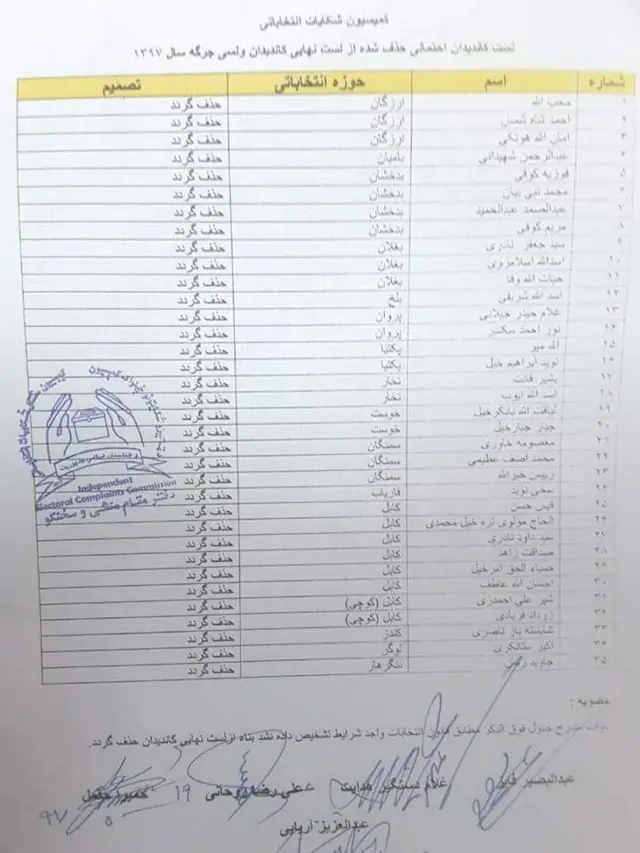 کمیسیون شکایات انتخاباتی
لست کاندیدان احتمالی حذف شده از لست نهایی کاندیدان ولسی جرگه سال ۱۳۹۷
شماره اسم حوزه انتخاباتی تصمیم
۱ محب الله ارزگان حذف گردد
۲ احمد شاه شمس ارزگان حذف گردد
۳ امان الله هوتکی ارزگان حذف گردد
۴ عبدالرحمن شهیدانی بامیان حذف گردد
۵ فوزیه کوفی بدخشان حذف گردد
۶ محمد نبی بیان بدخشان حذف گردد
۷ عبدالصمد عبدالحمید بدخشان حذف گردد
۸ مریم کوفی بدخشان حذف گردد
۹ سید جعفر نادری بغلان حذف گردد
۱۰ اسدالله اسلامروی بغلان حذف گردد
۱۱ حیات الله وفا بغلان حذف گردد
۱۲ اسد الله شریفی بلخ حذف گردد
۱۳ غلام حیدر جیلانی پروان حذف گردد
۱۴ نور احمد سکندر پروان حذف گردد
۱۵ الله میر پکتیا حذف گردد
۱۶ نوید ابراهیم خیل پکتیا حذف گردد
۱۷ بشیر قانت تخار حذف گردد
۱۸ اسد الله ایوب تخار حذف گردد
۱۹ لیاقت الله بابکرخیل خوست حذف گردد
۲۰ جبار جبارخیل خوست حذف گردد
۲۱ معصومه خاوری سمنگان حذف گردد
۲۲ محمد آصف عظیمی سمنگان حذف گردد
۲۳ رییس خیرالله سمنگان حذف گردد
۲۴ سخی نوید فاریاب حذف گردد
۲۵ قیس حسن کابل حذف گردد
۲۶ الحاج مولوی تره خیل محمدی کابل حذف گردد
۲۷ سید داود نادری کابل حذف گردد
۲۸ صداقت زاهد کابل حذف گردد
۲۹ ضیاء الحق امرخیل کابل حذف گردد
۳۰ احسان الله عاطف کابل حذف گردد
۳۱ شیر علی احمدزی کابل (کوچی) حذف گردد
۳۲ زرداد فریادی کابل (کوچی) حذف گردد
۳۳ شایسته باز ناصری کندز حذف گردد
۳۴ اکبر ستانکزی لوگر حذف گردد
۳۵ جاوید ننگرهار حذف گردد
Independent
Electoral Complaints Commission
دفتر مقام منشی و سخنگو
مصوبه :
ذوات مندرج جدول فوق الذکر مطابق قانون انتخابات واجد شرایط تشخیص داده نشد بناء از لست نهایی کاندیدان حذف گردد.
عبدالبصیر فایز غلام دستگیر هدایت علی رضا روحانی حمیرا حقمل
عبدالعزیز آریایی